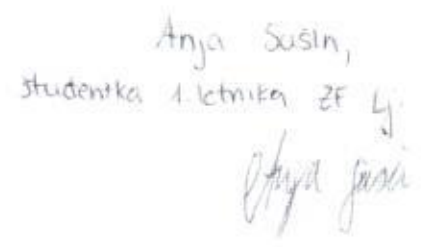 Anja Sušin,
študentka 1. letnika ZF Lj.
Anja Sušin